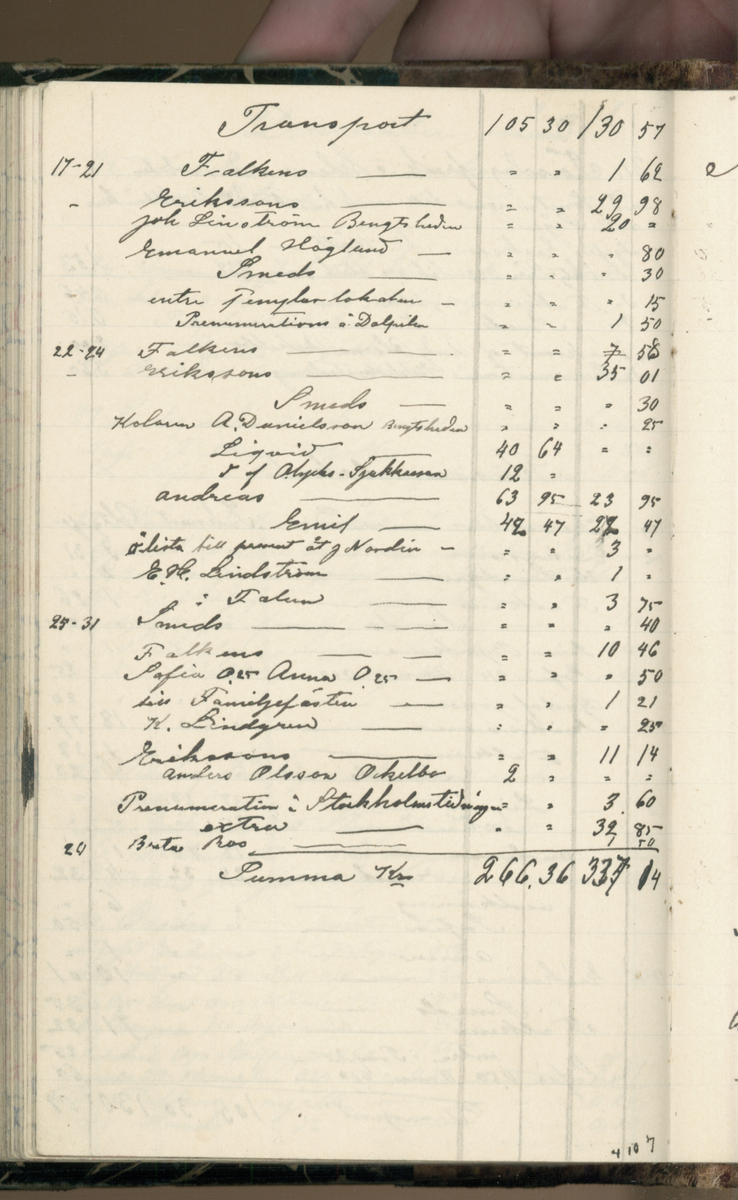 Transport 105 30 130 57
17-21 Falkens — " " 1 62
- Erikssons — " " 29 98
joh Linström Bengtsheden " " 20 "
Emanuel Höglund — " " " 80
Smeds — " " " 30
entre Templar lokalen — " " " 15
Prenumerations å Dalpilen " " 1 50
22-24 Falkens — " " 7 58
- Erikssons — " " 35 01
Smeds — " " " 30
Kolaren A. Danielsson Bengtsheden " " " 25
Liqvid 40 64 " "
12 "
andreas — 63 95 23 95
Emil — 42 47 22 47
å lista till present åt J Nordin — " " 3 "
E. H. Lindström — " " 1 "
i Falun — " " 3 75
25-31 Smeds — " " " 40
Falkens — " " 10 46
Sofia 0,25 Anna 0 25 — " " " 50
till Familjefästen — " " 1 21
K. Lindgren — " " " 25
Erikssons — " " 11 14
anders Olsson Ockelbo 2 " " "
Prenumeration i Stockholmstidningen " " 3 60
extra — " " 32 85
24 Brita Ros — 1 50
Summa Krs 266.36 337 14
4 10 7